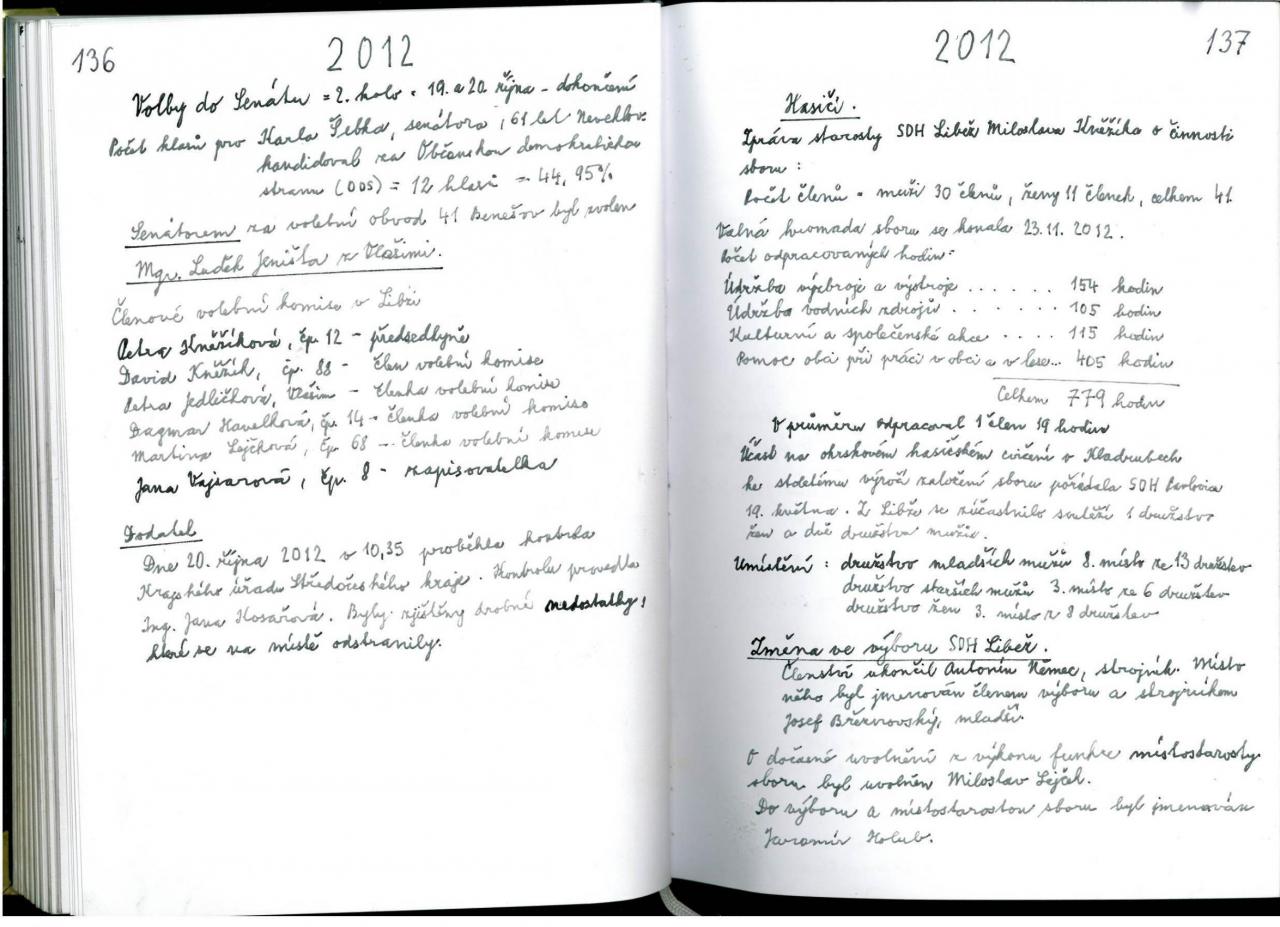 136
2012
Volby do Senátu = 2. kolo = 19. a 20. října - dokončení
Počet hlasů pro Karla Šebka, senátora, 61 let
kandidoval za Občanskou demokratickou
stranu (ODS) = 12 hlasů = 44,95%
Senátorem za volební obvod 41 Benešov byl zvolen
Mgr. Luděk Jeništa z Vlašimi.
Členové volební komise v Libži
Petra Kněžíková, čp. 12 - předsedkyně
David Kněžík, čp. 88 - člen volební komise
Petra Jedličková, Vlašim - členka volební komise
Dagmar Havelková, čp. 14 - členka volební komise
Martina Lejčková, čp. 68 - členka volební komise
Jana Vajsarová, čp. 8 - zapisovatelka
Dodatek
Dne 20. října 2012 v 10,35 proběhla kontrola
Krajského úřadu Středočeského kraje. Kontrolu provedla
Ing. Jana Kosařová. Byly zjištěny drobné nedostatky,
které se na místě odstranily.
2012
137
Hasiči.
Zpráva starosty SDH Libež Miloslava Kněžíka o činnosti
sboru :
Počet členů = muži 30 členů, ženy 11 členek, celkem 41.
Valná hromada sboru se konala 23.11. 2012.
Počet odpracovaných hodin:
Údržba výzbroje a výstroje . . . . . . 154 hodin
Údržba vodních zdrojů . . . . . . . 105 hodin
Kulturní a společenské akce . . . . 115 hodin
Pomoc obci při práci v obci a v lese... 405 hodin
Celkem 779 hodin
V průměru odpracoval 1 člen 19 hodin
Účast na okrskovém hasičském cvičení v Kladrubech
ke stoletému výročí založení sboru pořádala SDH Pavlovice
19. května. Z Libže se zúčastnilo soutěží 1 družstvo
žen a dvě družstva mužů.
Umístění : družstvo mladších mužů 8. místo ze 13 družstev
družstvo starších mužů 3. místo ze 6 družstev
družstvo žen 3. místo z 8 družstev
Změna ve výboru SDH Libež.
Členství ukončil Antonín Němec, strojník. Místo
něho byl jmenován členem výboru a strojníkem
Josef Březnovský, mladší.
O dočasné uvolnění z výkonu funkce místostarosty
sboru byl uvolněn Miloslav Lejček.
Do výboru a místostarostou sboru byl jmenován
Jaromír Holub.